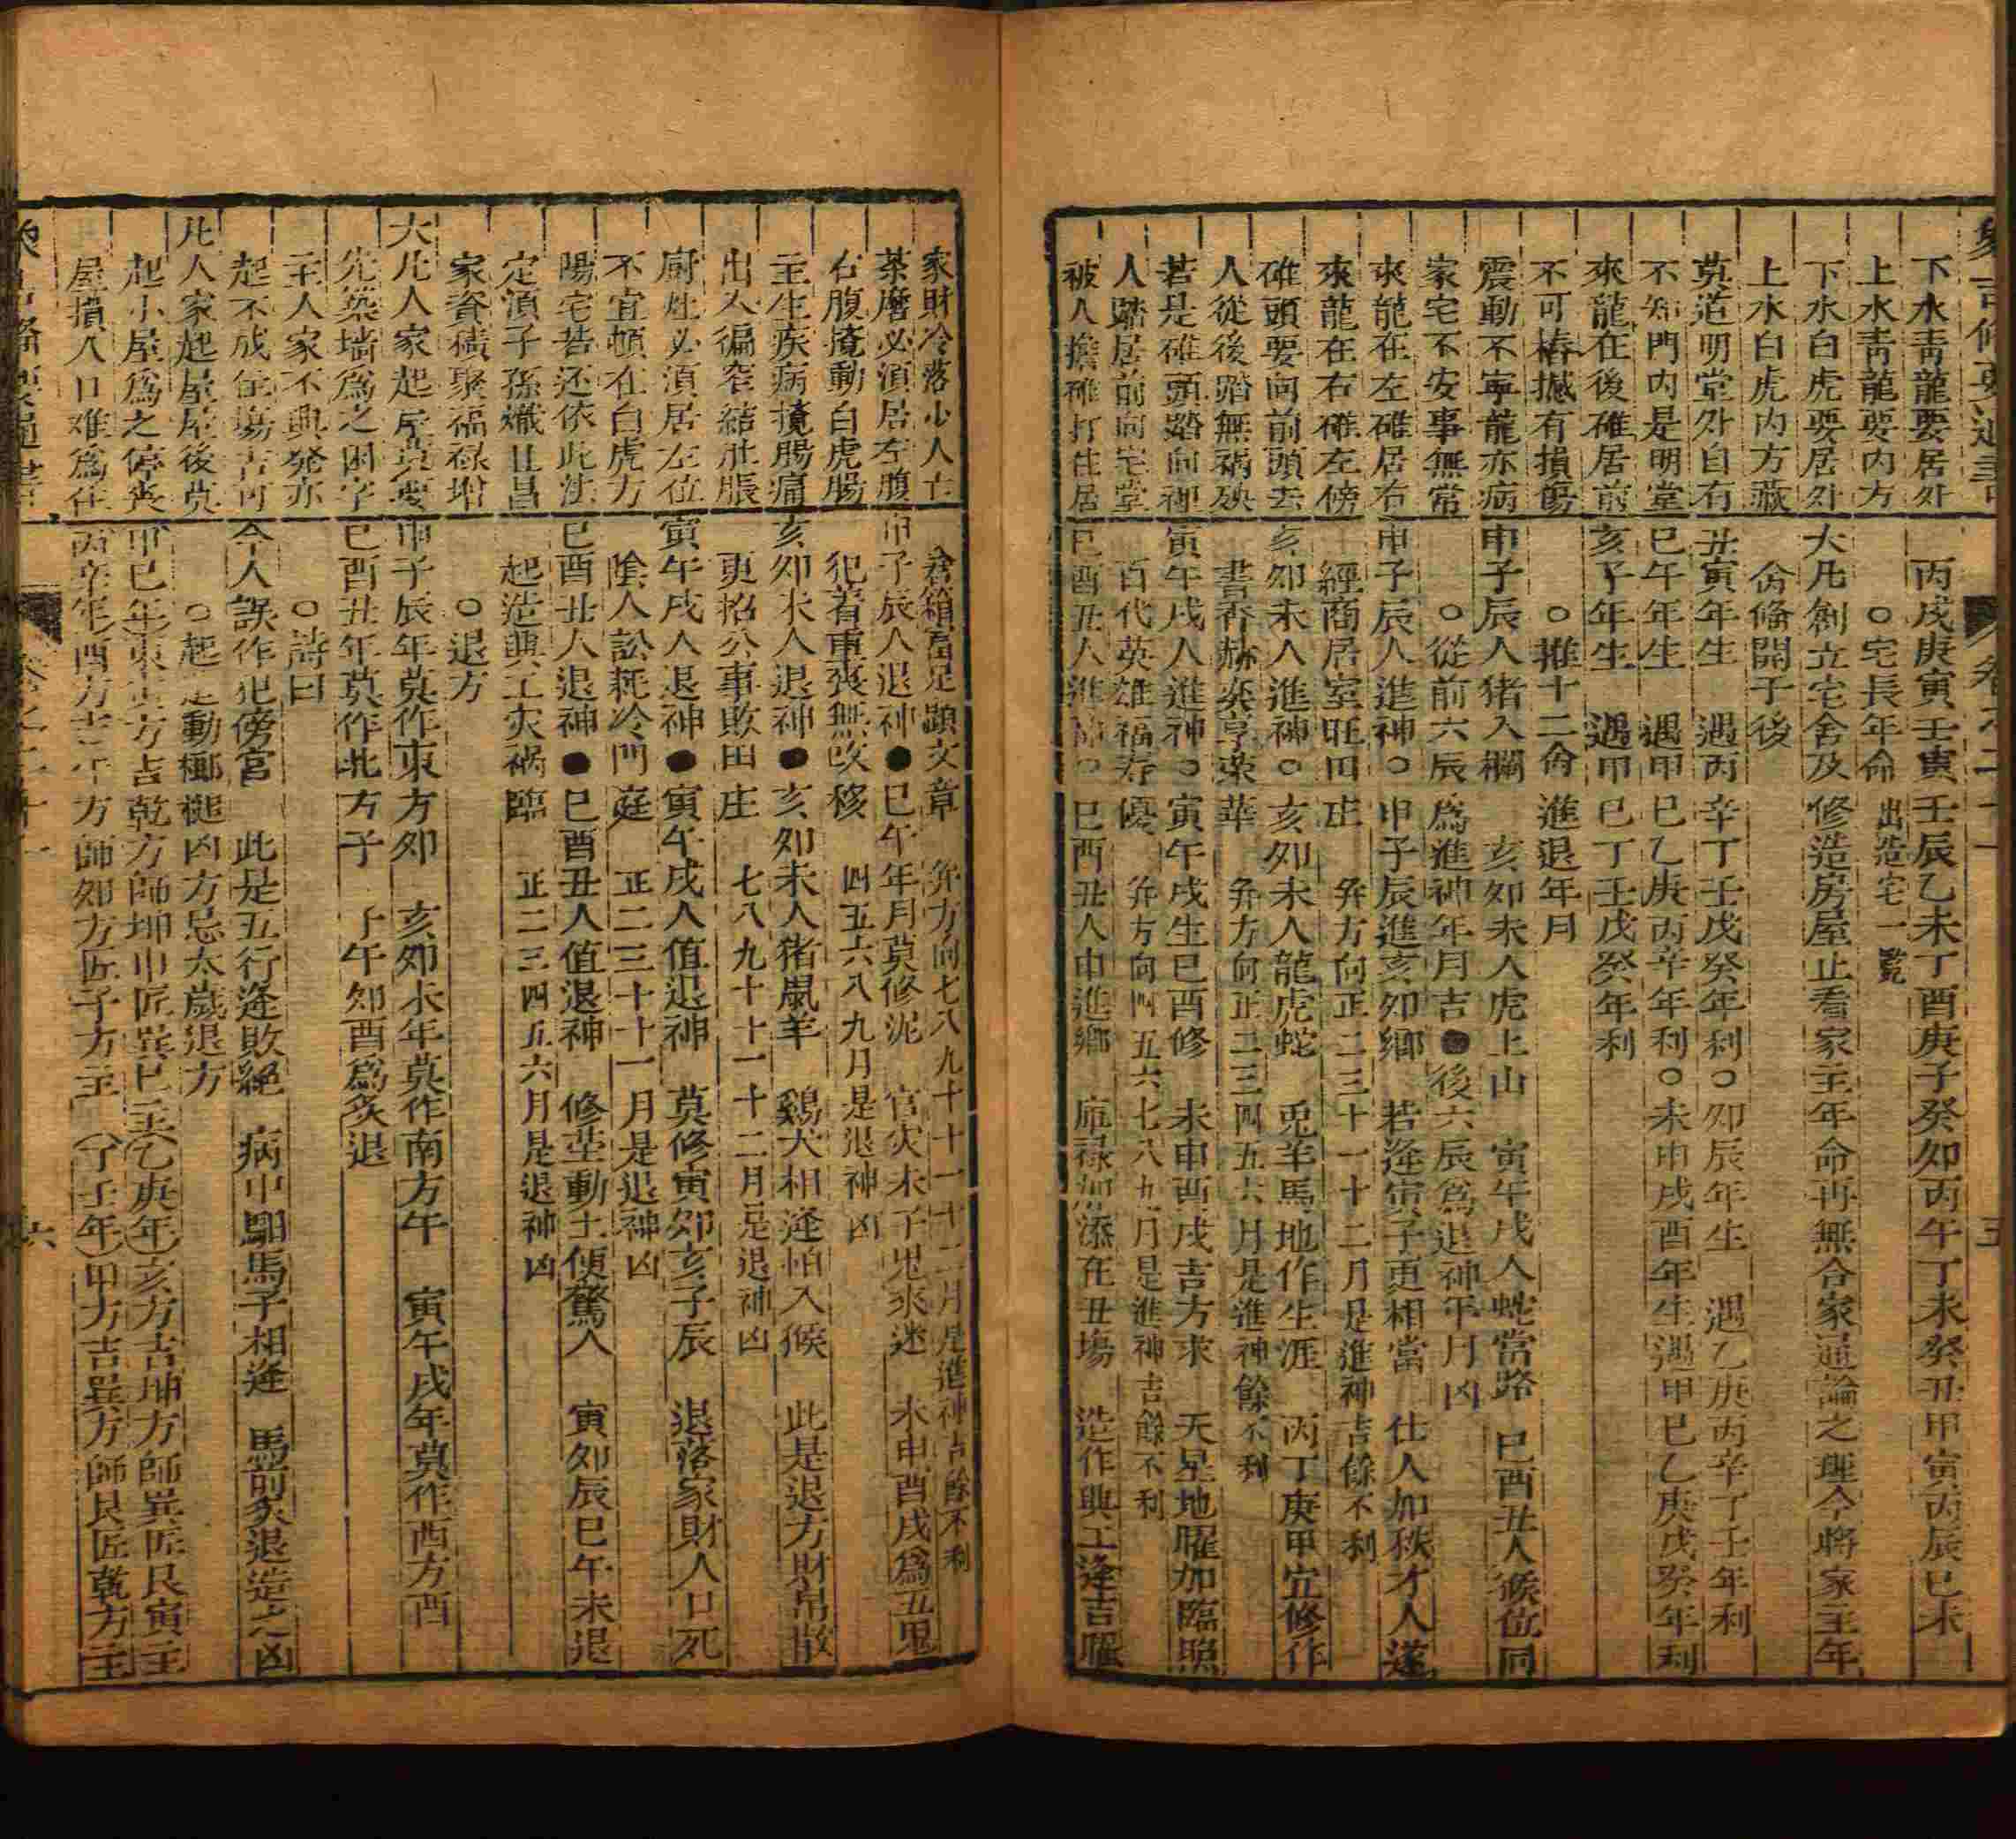 象吉備要通書
卷之二十一
五
下水青龍要居外
上水青龍要内方
下水白虎要居外
上水白虎内方藏
莫道明堂外自有
不知門内是明堂
來龍在後碓居前
不可樁撼有損傷
震動不寧龍亦病
家宅不安事無常
來龍在左碓居右
來龍在右碓左傍
碓頭要向前頭去
人從後踏無禍殃
若是碓頭踏向裡
人踏居前向宅堂
被人擔碓打住居
丙戌庚寅壬寅壬辰乙未丁酉庚子癸卯丙午丁未癸丑甲寅丙辰已未
○宅長年命 出造宅一覧
大凡創立宅舍及修造房屋止看家主年命再無合家通論之理今將家主年
命備開于後
丑寅年生 遇丙辛丁壬戊癸年利○卯辰年生 遇乙庚丙辛丁壬年利
巳午年生 遇甲巳乙庚丙辛年利○未申戌酉年生遇甲巳乙庚戊癸年利
亥子年生 遇甲巳丁壬戊癸年利
○推十二命進退年月
申子辰人猪入欄 亥卯未人虎上山 寅午戌人蛇當路 巳酉丑人猴位同
○從前六辰爲進神年月吉●後六辰爲退神年月凶
申子辰人進神○申子辰進亥卯鄉 若逢寅子更相當 仕人加秩才人遂
經商居室旺田庄 并方向正二三十一十二月是進神吉餘不利
亥卯未人進神○亥卯未人龍虎蛇 兎羊馬地作生涯 丙丁庚甲宜修作
書香赫奕享榮華 并方向正二三四五六月是進神餘不利
寅午戌人進神○寅午戌生巳酉修 未申酉戌吉方求 天星地曜加臨照
百代英雄福寿優 并方向四五六七八九月是進神吉餘不利
巳酉丑人進神○巳酉丑人申進鄉 庫祿加添在丑塲 造作興工逢吉曜
家財冷落小人亡
茶磨必湏居左腹
右腹擾動白虎腸
主生疾病攪腸痛
出入徧窄結肚脹
廚灶必湏居左位
不宜頓在白虎方
陽宅若还依此法
定湏子孫熾且昌
家資積聚福禄增
大凡人家起屋莫要
先築墻爲之困字
主人家不興発亦
起不成住塲吉可
凡人家起屋屋後莫
起小屋爲之停喪
屋損人口难爲住
倉箱富足顕文章 并方向七八九十十一十二月是進神吉餘不利
申子辰人退神●巳午年月莫修泥 官灾未了鬼來迷 未申酉戌爲五鬼
犯着重喪無改移 四五六八九月是退神凶
亥卯未人退神●亥卯未人猪鼠羊 鷄犬相逢怕入候 此是退方財帛散
更招公事敗田庄 七八九十十一十二月是退神凶
寅午戌人退神●寅午戌人值退神 莫修寅卯亥子辰 退落家財人口死
陰人訟耗冷門庭 正二三十十一月是退神凶
巳酉丑人退神●巳酉丑人值退神 修塋動土便驚人 寅卯辰巳午未退
起造興工灾禍臨 正二三四五六月是退神凶
○退方
申子辰年莫作東方卯 亥卯未年莫作南方午 寅午戌年莫作西方酉
巳酉丑年莫作北方子 子午卯酉爲炙退
○詩曰
今人誤作犯傍官 此是五行逢敗絕 病中駟馬子相逢 馬前炙退造之凶
○起 動 槌凶方忌太歲退方
甲巳年東 方吉乾方師坤申匠巽巳主(乙庚年)亥方吉坤方師巽匠艮寅主
丙辛年酉方吉 方師卯方匠子方主 (丁壬年)甲方吉巽方師艮匠乾方主
六